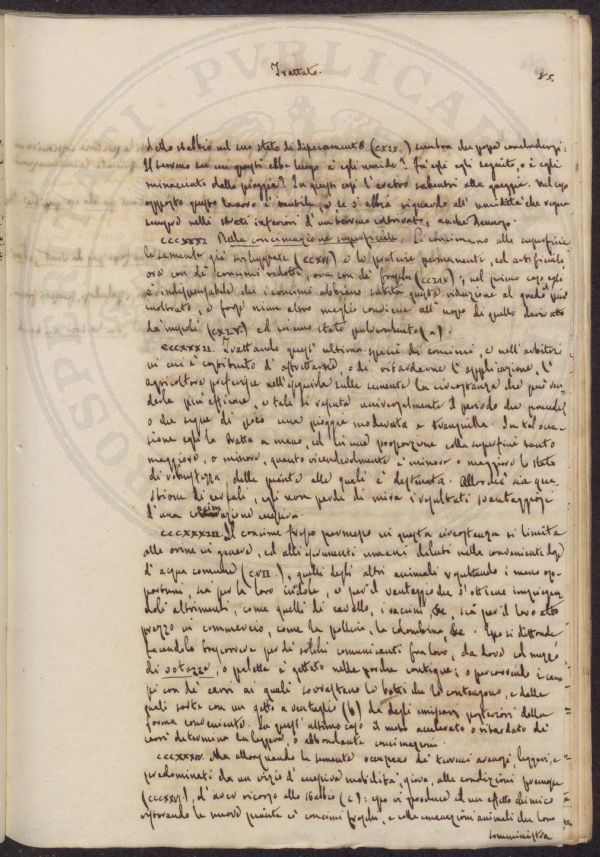 Trattato.
85.
dello stabbio nel suo stato di disseccamento (CXIX.) sembra che possa concludersi:
Il terreno su cui questi ebbe luogo è egli umido? Fu egli seguito, o è egli
minacciato dalla pioggia? In questi casi l'aratro subentri alla greggia. Nel caso
opposto questo lavoro è inutile, se si abbia riguardo all'umidità che regna
sempre nelli strati inferiori d'un terreno coltivato, anche d'
CCCXXXI. Della concimazione superficiale. Si concimano alla superficie
le semente già sviluppate (CCXVI) e le praterie permanenti, ed artificiali
ora con dei concimi ridotti, ora con dei freschi (CCLIX); nel primo caso egli
è indispensabile che i concimi abbiano subita questa riduzione al grado più
inoltrato, e forse niun altro meglio conviene all'uopo di quello derivato
da (CXLV) ed in uno stato pulverulento (a).
CCCXXXII. Trattando quest'ultima specie dei concimi, e nell'arbitrio
in cui è costituito d'affrettarne, o di ritardarne l'applicazione, l'
agricoltore preferisce nell'eseguirla sulle semente la circostanza che può ren-
derla più efficace, e tale si reputa universalmente il periodo che precede,
o che segue di poco una pioggia moderata e tranquilla. In tal occa-
sione egli la tratta a mano, ed in una proporzione colla superficie tanto
maggiore, o minore, quanto vicendevolmente è minore o maggiore lo stato
di robustezza, delle piante alle quali è destinata. Allorchè sia que-
stione di cereali, egli non perde di mira i resultati svantaggiosi
d'una concimazione eccessiva.
CCCXXXIII. Il concime fresco permesso in questa circostanza si limita
alle orine in genere, ed alli escrementi umani diluti nella conveniente dose
d'acqua comune (CVII.), quelli degli altri animali resultando i meno op-
portuni, sia per la loro indole, e per il vantaggio che s'ottiene impiegan-
doli altrimenti, come quelli di cavallo, i vaccini &c. sia per il loro alto
prezzo in commercio, come la pollina, la colombina, &c. Essi si diffonde
facendolo trascorrere per di solchi comunicanti fra loro, da dove col mezzo
di votazze, o palotta è gettato nelle porche contigue; o percorrendo i cam-
pi con dei carri ai quali sovrastano le botti che lo contengono, e dalle
quali sorte con un getto a ventaglio (b) da degli emissari posteriori della
forma conveniente. In quest'ultimo caso il moto accelerato o ritardato dei
carri determina la leggera, o abbondante concimazione.
CCCXXXIV. Ma allorquando le semente occupano dei terreni arenosi, leggeri, e
predominati da un vizio d'eccessiva mobilità, giova, alle condizioni premesse
(CCCXXVI.), d'aver ricorso allo stabbio (c): esso vi produce ed un effetto chimico
ristorando le nuove piante coi concimi freschi, e colle emanazioni animali che loro
somministra